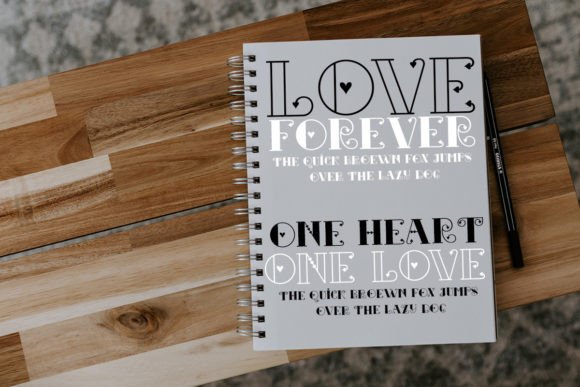 LOVE
FOREVER
THE QUICK BROEWN FOX JUMPS
OVER THE LAZY DOG
ONE HEART
ONE LOVE
THE QUICK BROEWN FOX JUMPS
OVER THE LAZY DOG